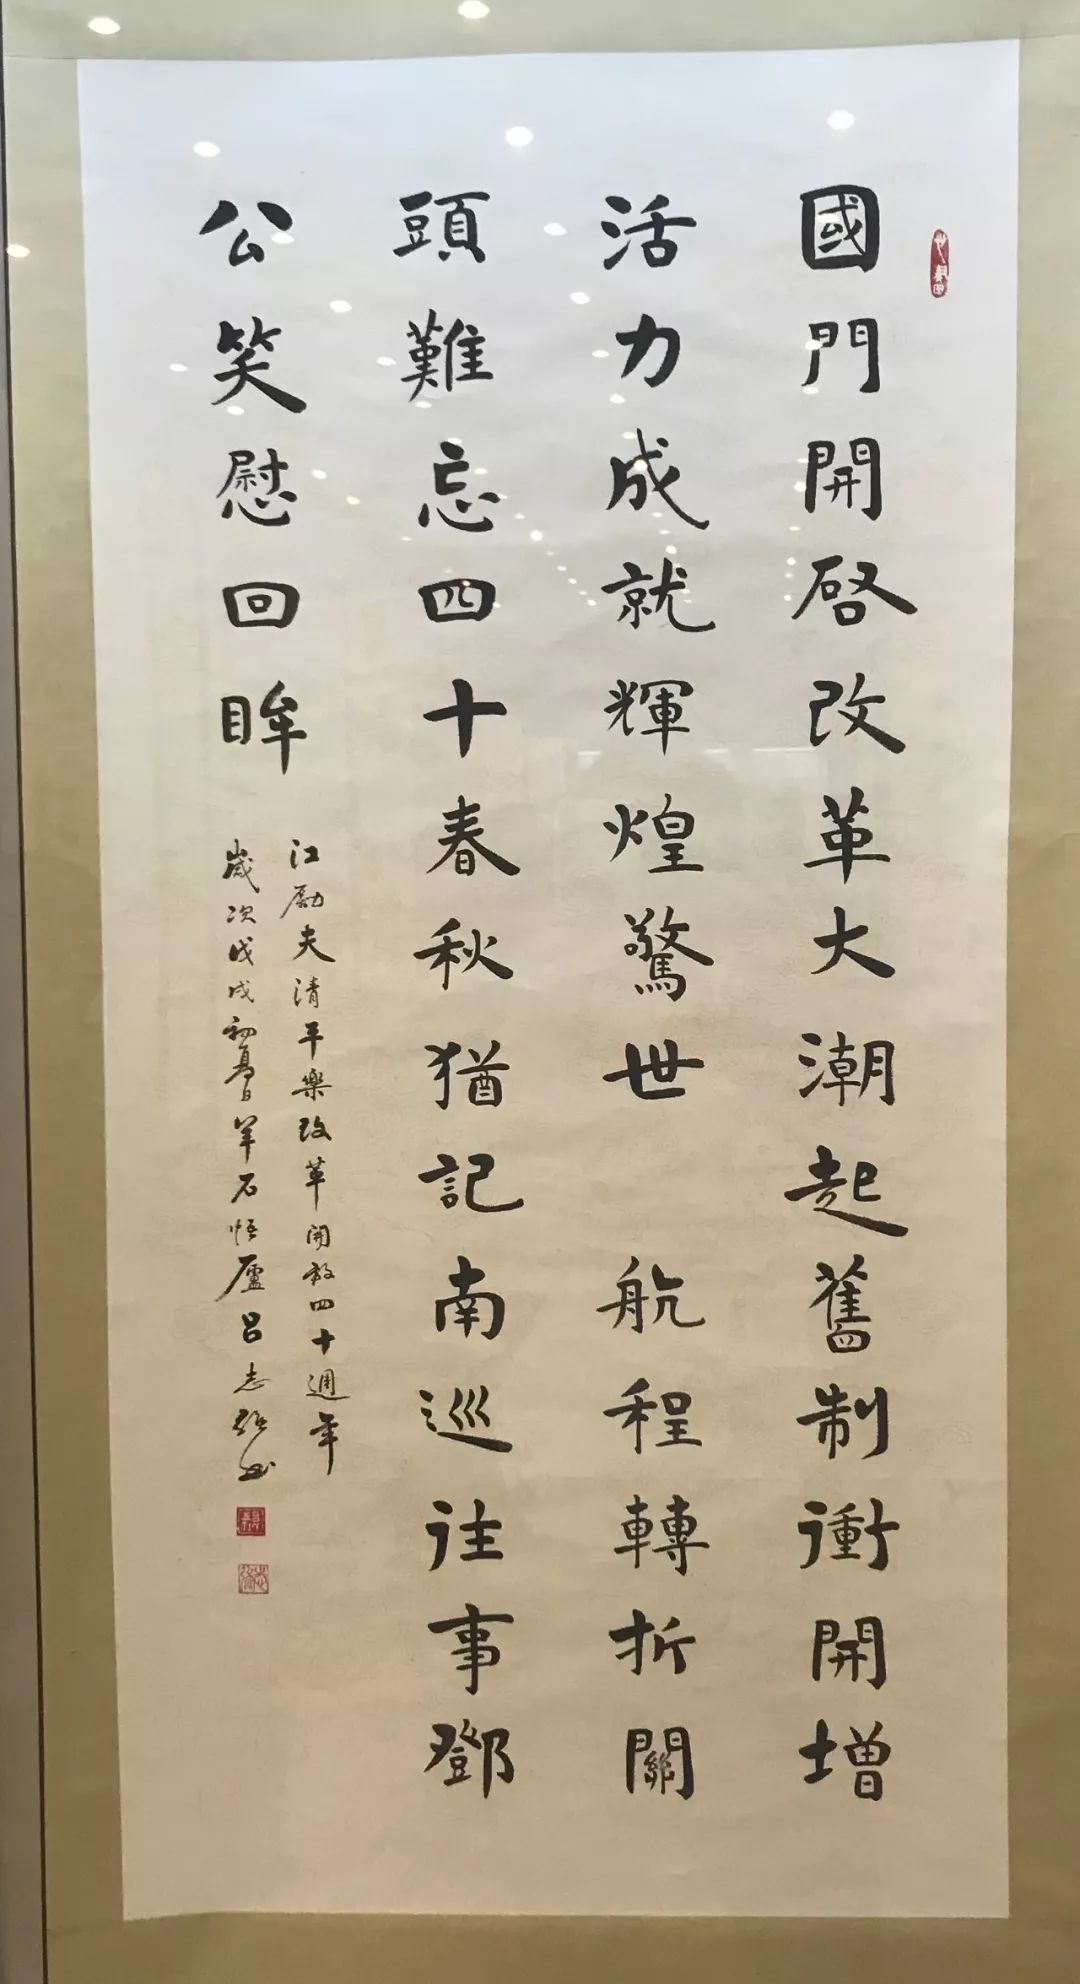 國門開啓改革大潮起舊制衝開增
活力成就輝煌驚世 航程轉折關
頭難忘四十春秋猶記南巡往事鄧
公笑慰回眸
江勵夫清平樂改革開放四十週年
歲次戊戌初夏羊石悟廬呂志強書